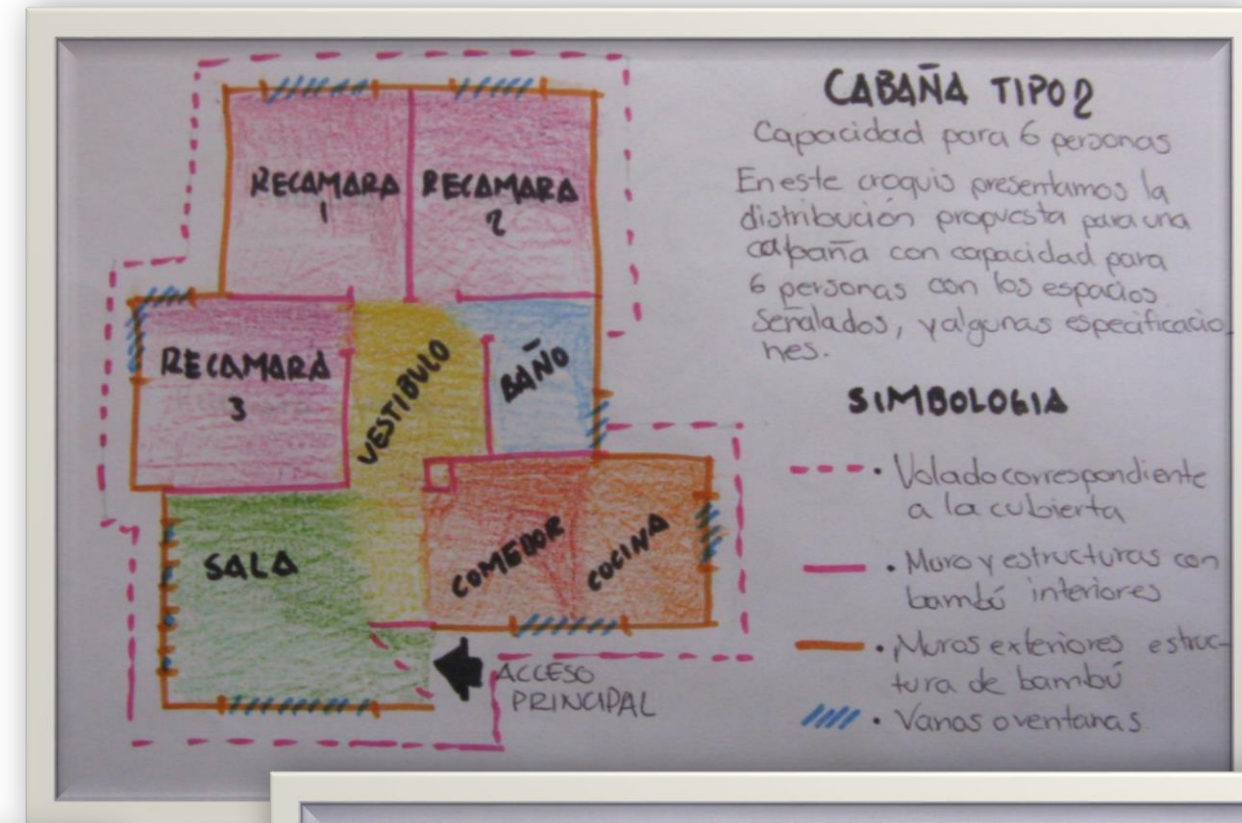 RECAMARA
1
RECAMARA
2
RECAMARA
3
VESTIBULO
BAÑO
SALA
COMEDOR
COCINA
ACCESO
PRINCIPAL
CABAÑA TIPO 2
Capacidad para 6 personas
En este croquis presentamos la
distribución propuesta para una
cabaña con capacidad para
6 personas con los espacios
señalados, y algunas especificacio
nes.
SIMBOLOGIA
• Volado correspondiente
a la cubierta
• Muro y estructuras con
bambú interiores
• Muros exteriores estruc-
tura de bambú
• Vanos o ventanas